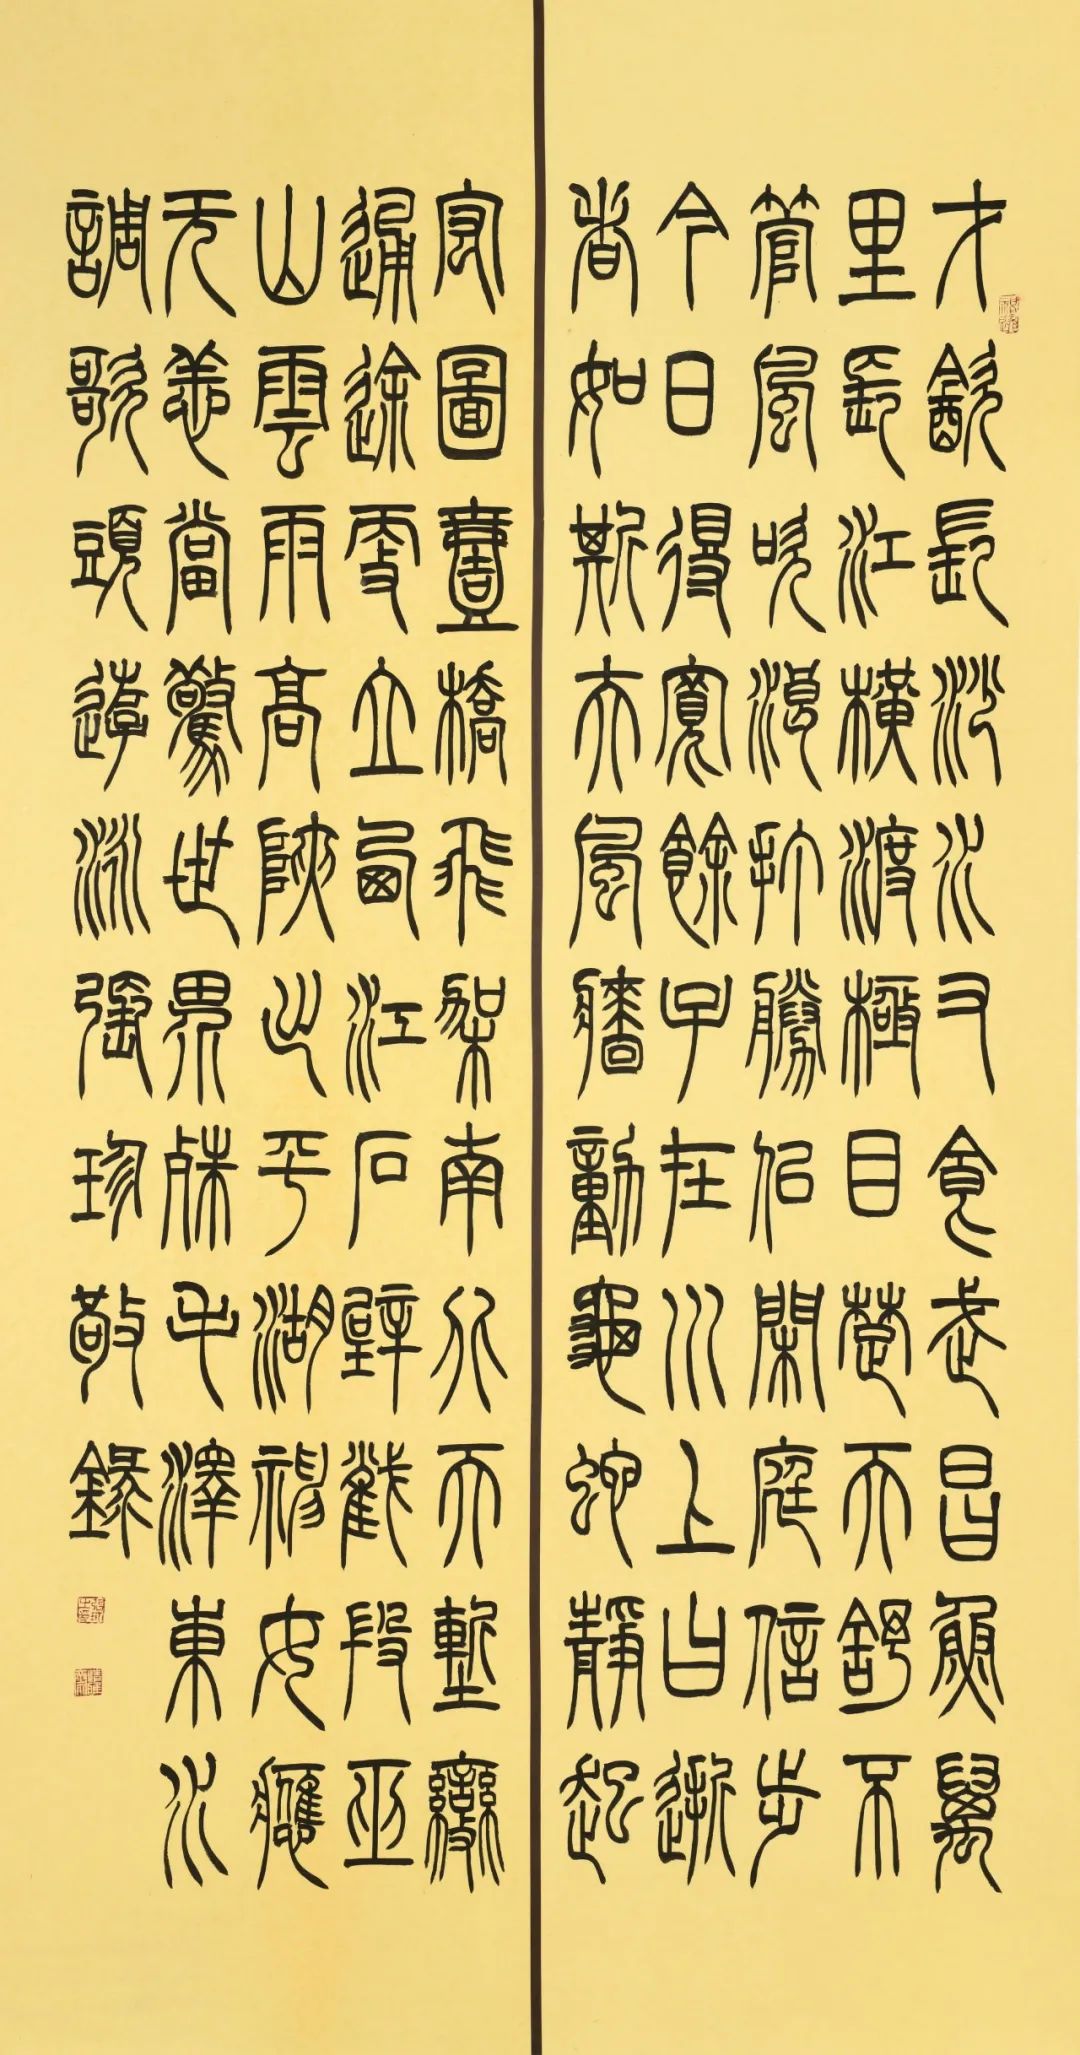 才飲長沙水又食武昌魚萬
里長江橫渡極目楚天舒不
管風吹浪打勝似閑庭信步
今日得寬餘子在川上曰逝
者如斯夫風檣動龜蛇靜起
宏圖壹橋飛架南北天塹變
通途更立西江石壁截段巫
山雲雨高陜出平湖神女應
无恙當驚世界殊毛澤東水
調歌頭游泳張珍敬錄